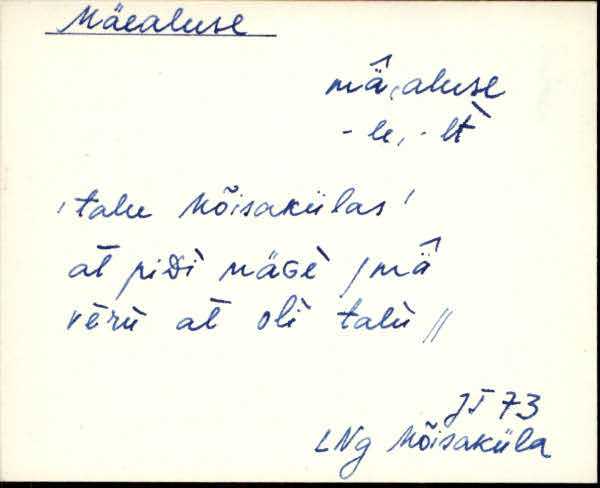 Mäealuse
mä̂,aluse
-le, -lt̀
'talu Mõisakülas'
at piDì mäGè / mä̂
vērù at olì talù //
JT 73
LNg Mõisaküla